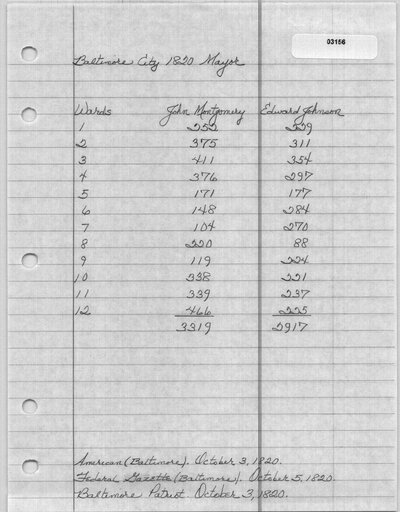 03156
Baltimore City 1820 Mayor
Wards John Montgomery Edward Johnson
1 252 229
2 375 311
3 411 354
4 376 297
5 171 177
6 148 284
7 104 270
8 220 88
9 119 224
10 338 221
11 339 237
12 466 225
3319 2917
American (Baltimore). October 3, 1820.
Federal Gazette (Baltimore). October 5, 1820.
Baltimore Patriot October 3, 1820.